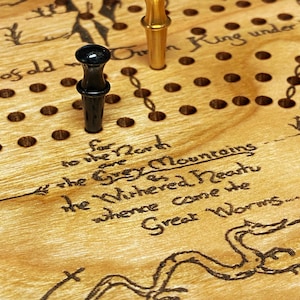 King under
of old
far
to the North
are
the Grey Mountains
the Withered Heath
whence came the
Great Worms...